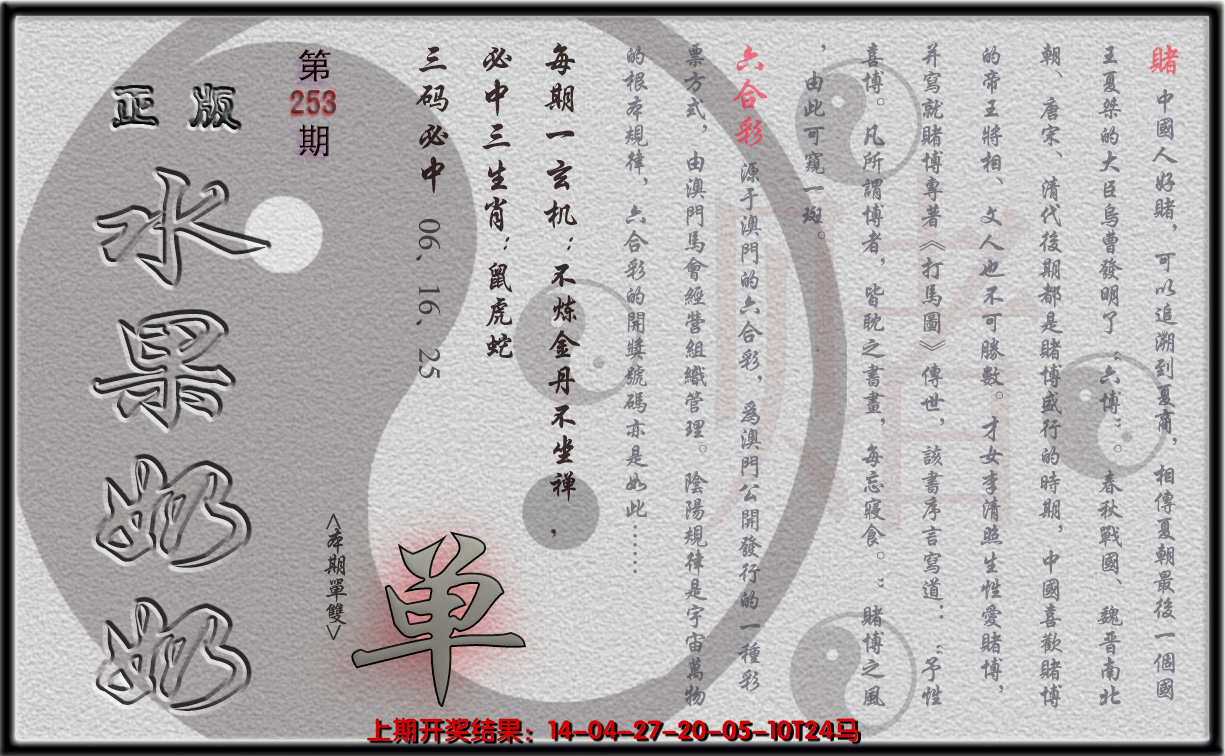 賭 中國人好賭，可以追溯到夏商，相傳夏朝最後一個國
王夏桀的大臣烏曹發明了“六博”。春秋戰國、魏晋南北
朝、唐宋、清代後期都是賭博盛行的時期，中國喜歡賭博
的帝王將相、文人也不可勝數。才女李清照生性愛賭博，
并寫就賭博專著《打馬圖》傳世，該書序言寫道：“予性
喜博。凡所謂博者，皆耽之書畫，每忘寢食。”賭博之風
，由此可窺一斑。
六合彩 源于澳門的六合彩，爲澳門公開發行的一種彩
票方式，由澳門馬會經營組織管理。陰陽規律是宇宙萬物
的根本規律，六合彩的開獎號碼亦是如此……
每期一玄机：不炼金丹不坐禅，
必中三生肖：鼠虎蛇
三码必中 06、16、25
第
253
期
<本期單雙>
单
正版
水果奶奶
上期开奖结果：14-04-27-20-05-10T24马
赌